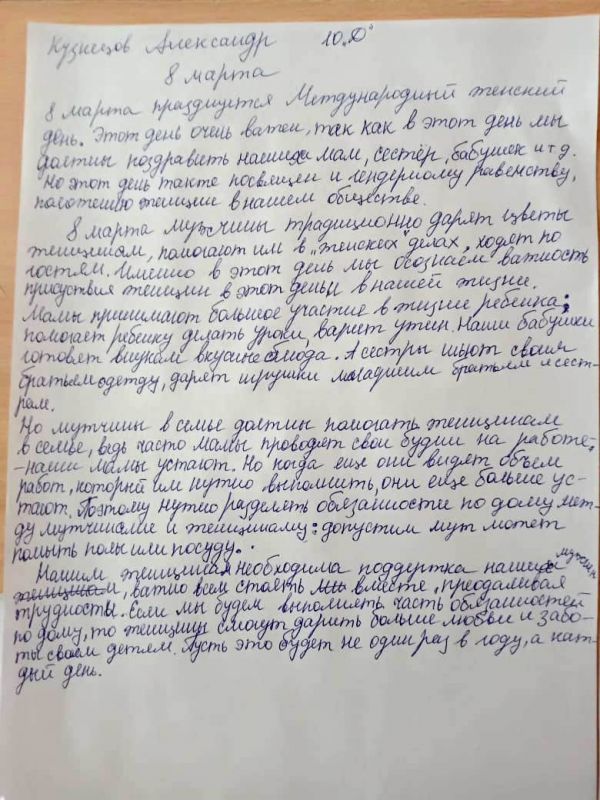 Кузнецов Александр 10 „Д“
8 марта
8 марта празднуется Международный женский
день. Этот день очень важен, так как в этот день мы
должны поздравить наших мам, сестёр, бабушек и т д.
Но этот день также посвящен и гендерному равенству,
положению женщине в нашем обществе.
8 марта мужчины традиционно дарят цветы
женщинам, помогают им в „женских делах, ходят по
гостям. Именно в этот день мы осознаем важность
присуствия женщин в этот день в нашей жизни.
Мамы принимают большое участие в жизни ребенка:
помогает ребенку делать уроки, варит ужин. Наши бабушки
готовят внукам вкусные блюда. А сестры шьют своим
братьем одежду, дарят игрушки младшим братьям и сест-
рам.
Но мужчины в семье должны помогать женщинам
в семье, ведь часто мамы проводят свои будни на работе,
-наши мамы устают. Но когда еще они видят объем
работ, который им нужно выполнить, они еще больше ус-
тают. Поэтому нужно разделять обязанности по дому меж-
ду мужчинами и женщинами: допустим муж может
помыть полы или посуду.
Нашим женщинам необходима поддержка наших мужчин
женщинам, важно всем стоять вместе, преодаливая
трудности. Если мы будем выполнять часть обязанностей
по дому, то женщины смогут дарить больше любви и забо-
ты своим детям. Пусть это будет не один раз в году, а каж-
дый день.